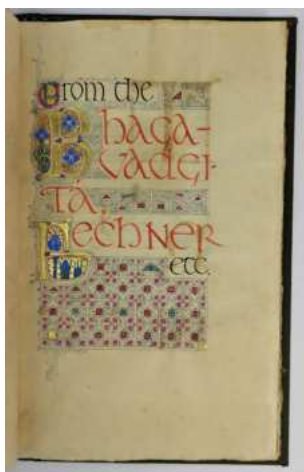 From the
Bhaga-
vadgi-
tá,
Fechner
etc.